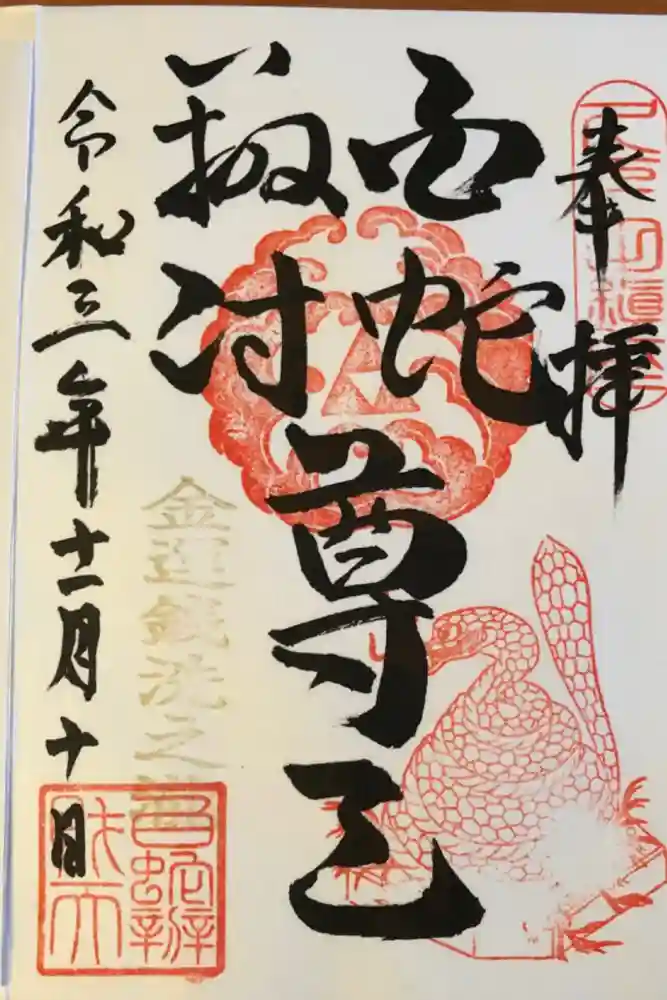 奉拝
白蛇
辨財
尊
巳
金運銭洗之
令和三年十一月十日
白蛇辨財天